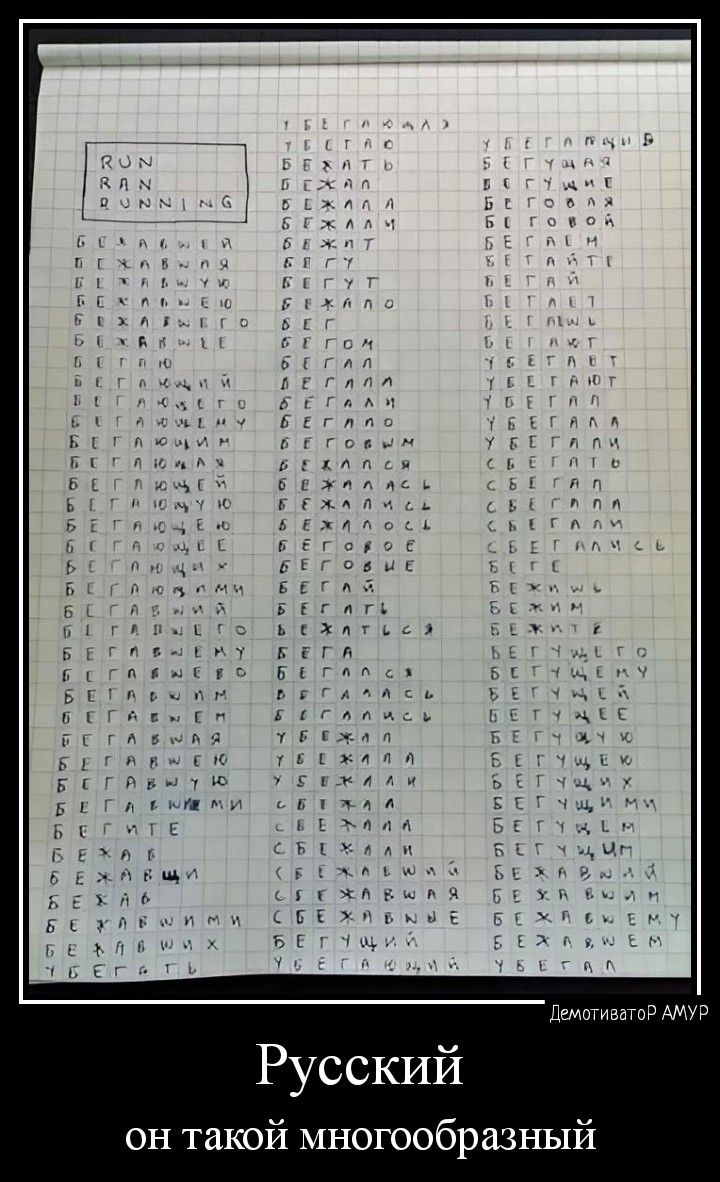 RUN
RAN
RUNNING
БЕЖАВШЕЙ
БЕЖАВШАЯ
БЕЖАВШУЮ
БЕЖАВШЕЮ
БЕЖАВШЕГО
БЕЖАВШЕЕ
БЕГАЮ
БЕГАЮЩИЙ
БЕГАЮЩЕГО
БЕГАЮЩЕМУ
БЕГАЮЩИМ
БЕГАЮЩАЯ
БЕГАЮЩЕЙ
БЕГАЮЩУЮ
БЕГАЮЩЕЮ
БЕГАЮЩЕЕ
БЕГАЮЩИХ
БЕГАЮЩИМИ
БЕГАВШИЙ
БЕГАВШЕГО
БЕГАВШЕМУ
БЕГАВШЕВО
БЕГАВШИМ
БЕГАВШЕМ
БЕГАВШАЯ
БЕГАВШЕЮ
БЕГАВШУЮ
БЕГАВШИМИ
БЕГИТЕ
БЕЖАВ
БЕЖАВЩИ
БЕЖАВ
БЕЖАВШИМИ
БЕЖАВШИХ
УБЕГАТЬ
УБЕГАЮ
БЕЖАТЬ
БЕЖАЛ
БЕЖАЛА
БЕЖАЛИ
БЕЖИТ
БЕГУ
БЕГУТ
БЕЖАЛО
БЕГ
БЕГОМ
БЕГАЛ
БЕГАЛА
БЕГАЛИ
БЕГАЛО
БЕГОВЫМ
БЕЖАЛСЯ
БЕЖАЛАСЬ
БЕЖАЛИСЬ
БЕЖАЛОСЬ
БЕГОВОЕ
БЕГОВЫЕ
БЕГАЙ
БЕГАТЬ
БЕЖАТЬСЯ
БЕГА
БЕГАЛСЯ
БЕГАЛАСЬ
БЕГАЛИСЬ
УБЕЖАЛ
УБЕЖАЛА
УБЕЖАЛИ
СБЕЖАЛ
СБЕЖАЛА
СБЕЖАЛИ
СБЕЖАВШИЙ
СБЕЖАВШАЯ
СБЕЖАВШЫЕ
БЕГУЩИЙ
УБЕГАЮЩИЙ
БЕГУЩАЯ
БЕГУЩИЕ
БЕГОВАЯ
БЕГОВОЙ
БЕГАЕМ
БЕГАЙТЕ
БЕГАЙ
БЕГАЕТ
БЕГАЕШЬ
БЕГАЮТ
УБЕГАЕТ
УБЕГАЮТ
УБЕГАЛ
УБЕГАЛА
УБЕГАЛИ
СБЕГАТЬ
СБЕГАЛ
СБЕГАЛА
СБЕГАЛИ
СБЕГАЛИСЬ
БЕГЕ
БЕЖИШЬ
БЕЖИМ
БЕЖИТЕ
БЕГУЩЕГО
БЕГУЩЕМУ
БЕГУЩЕЙ
БЕГУЩЕЕ
БЕГУЩУЮ
БЕГУЩЕЮ
БЕГУЩИХ
БЕГУЩИМИ
БЕГУЩЕМ
БЕГУЩИМ
БЕЖАВШИЙ
БЕЖАВШИМ
БЕЖАВШЕМУ
БЕЖАВШЕМ
УБЕГАЛ
ДемотиватоР АМУР
Русский
он такой многообразный